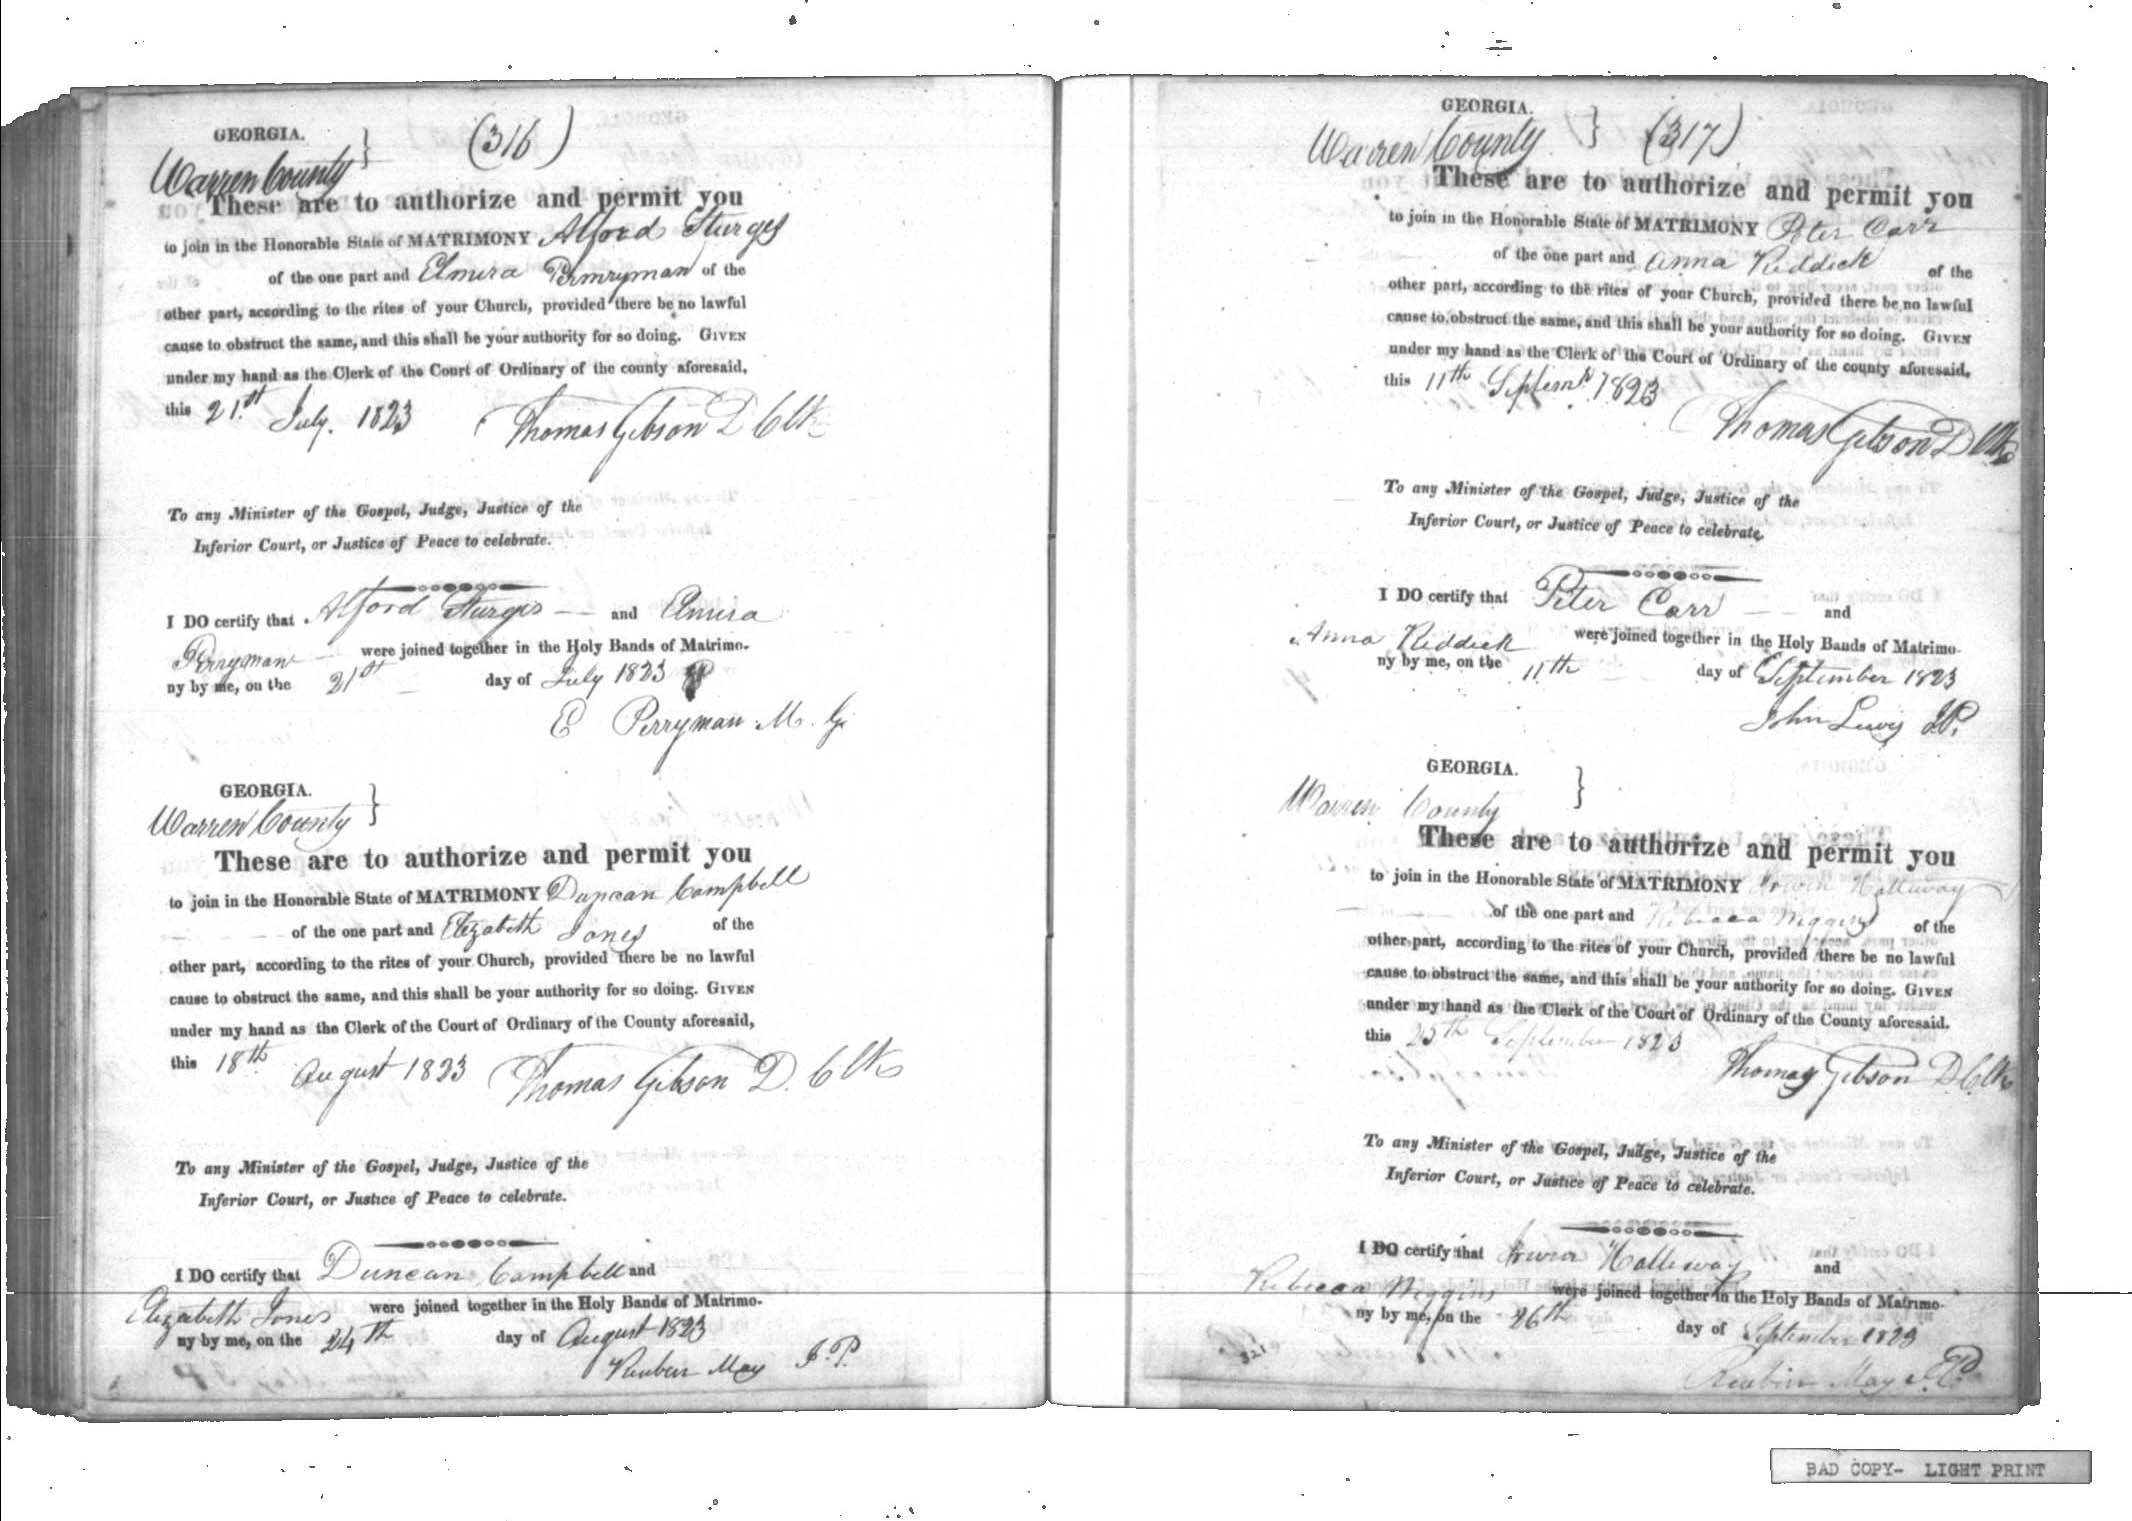 GEORGIA.
Warren County } (316)
These are to authorize and permit you
to join in the Honorable State of MATRIMONY Alford Sturges
of the one part and Elmira Perryman of the
other part, according to the rites of your Church, provided there be no lawful
cause to obstruct the same, and this shall be your authority for so doing. GIVEN
under my hand as the Clerk of the Court of Ordinary of the county aforesaid,
this 21st July. 1823 Thomas Gibson D Clk
To any Minister of the Gospel, Judge, Justice of the
Inferior Court, or Justice of Peace to celebrate.
I DO certify that Alford Sturges and Elmira
Perryman were joined together in the Holy Bands of Matrimo-
ny by me, on the 21st day of July 1823
E Perryman M. G.
GEORGIA.
Warren County }
These are to authorize and permit you
to join in the Honorable State of MATRIMONY Duncan Campbell
of the one part and Elizabeth Jones of the
other part, according to the rites of your Church, provided there be no lawful
cause to obstruct the same, and this shall be your authority for so doing. GIVEN
under my hand as the Clerk of the Court of Ordinary of the County aforesaid,
this 18th August 1823 Thomas Gibson D. Clk
To any Minister of the Gospel, Judge, Justice of the
Inferior Court, or Justice of Peace to celebrate.
I DO certify that Duncan Campbell and
Elizabeth Jones were joined together in the Holy Bands of Matrimo-
ny by me, on the 24th day of August 1823
Reuben May J.P.
GEORGIA.
Warren County } (317)
These are to authorize and permit you
to join in the Honorable State of MATRIMONY Peter Carr
of the one part and Anna Riddick of the
other part, according to the rites of your Church, provided there be no lawful
cause to obstruct the same, and this shall be your authority for so doing. GIVEN
under my hand as the Clerk of the Court of Ordinary of the county aforesaid,
this 11th Septemr 1823
Thomas Gibson D Clk
To any Minister of the Gospel, Judge, Justice of the
Inferior Court, or Justice of Peace to celebrate.
I DO certify that Peter Carr and
Anna Riddick were joined together in the Holy Bands of Matrimo-
ny by me, on the 11th day of September 1823
John Lewis J.P.
GEORGIA.
Warren County }
These are to authorize and permit you
to join in the Honorable State of MATRIMONY Irwin Holloway
of the one part and Rebecca Wiggins of the
other part, according to the rites of your Church, provided there be no lawful
cause to obstruct the same, and this shall be your authority for so doing. GIVEN
under my hand as the Clerk of the Court of Ordinary of the County aforesaid,
this 25th September 1823
Thomas Gibson D. Clk
To any Minister of the Gospel, Judge, Justice of the
Inferior Court, or Justice of Peace to celebrate.
I DO certify that Irwin Holloway and
Rebecca Wiggins were joined together in the Holy Bands of Matrimo-
ny by me, on the 26th day of September 1823
Reubin May J.P.
BAD COPY- LIGHT PRINT